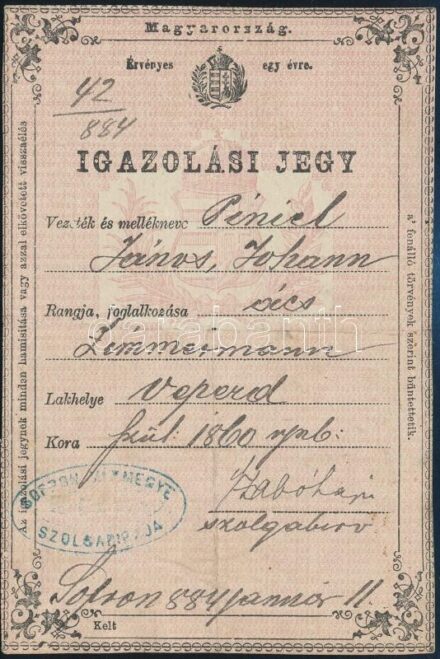 Magyarország.
Érvényes egy évre.
42
884
IGAZOLÁSI JEGY
Vezeték és mellékneve Péniel
János, Johann
Rangja, foglalkozása ács
Zimmermann
Lakhelye Veperd
Kora szül: 1860
szolgabiró
SOPRON MEGYE
Sopron 884 január 11.
Kelt
Az igazolási jegynek minden hamisitása vagy azzal elkövetett visszaélés
a' fenálló törvények szerint büntettetik.
darabanth